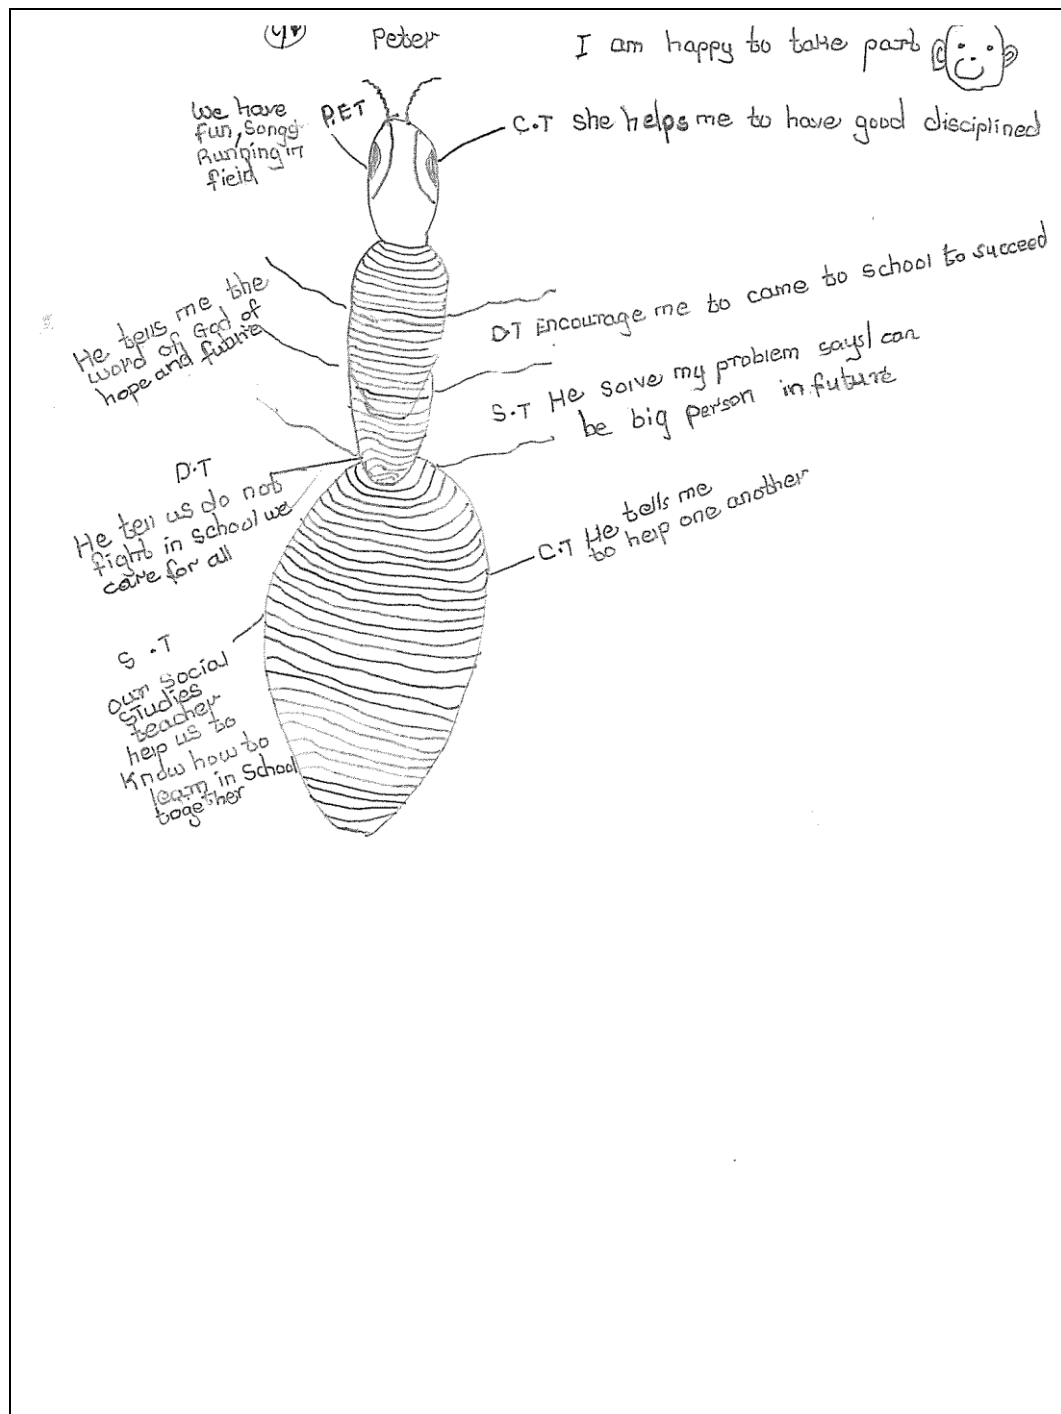 Peter
I am happy to take part
We have
fun, songs
Running in
field
P.E.T
C.T She helps me to have good disciplined
He tells me the
word off God of
hope and future
D.T Encourage me to came to School to succeed
S.T He solve my problem says I can
be big person in future
D.T
He tell us do not
fight in School we
care for all
C.T He tells me
to help one another
S.T
our Social
studies
teacher
help us to
Know how to
learn in School
together